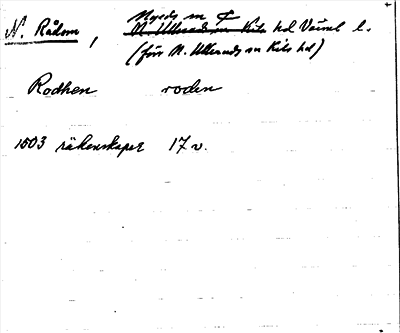 Nyeds sn
N. Rådom, N. Ullerads sn Kils hd Värml l.
(förr N. Ullerads sn Kils hd)
Rodhen roden
1503 räkenskaper 17 v.